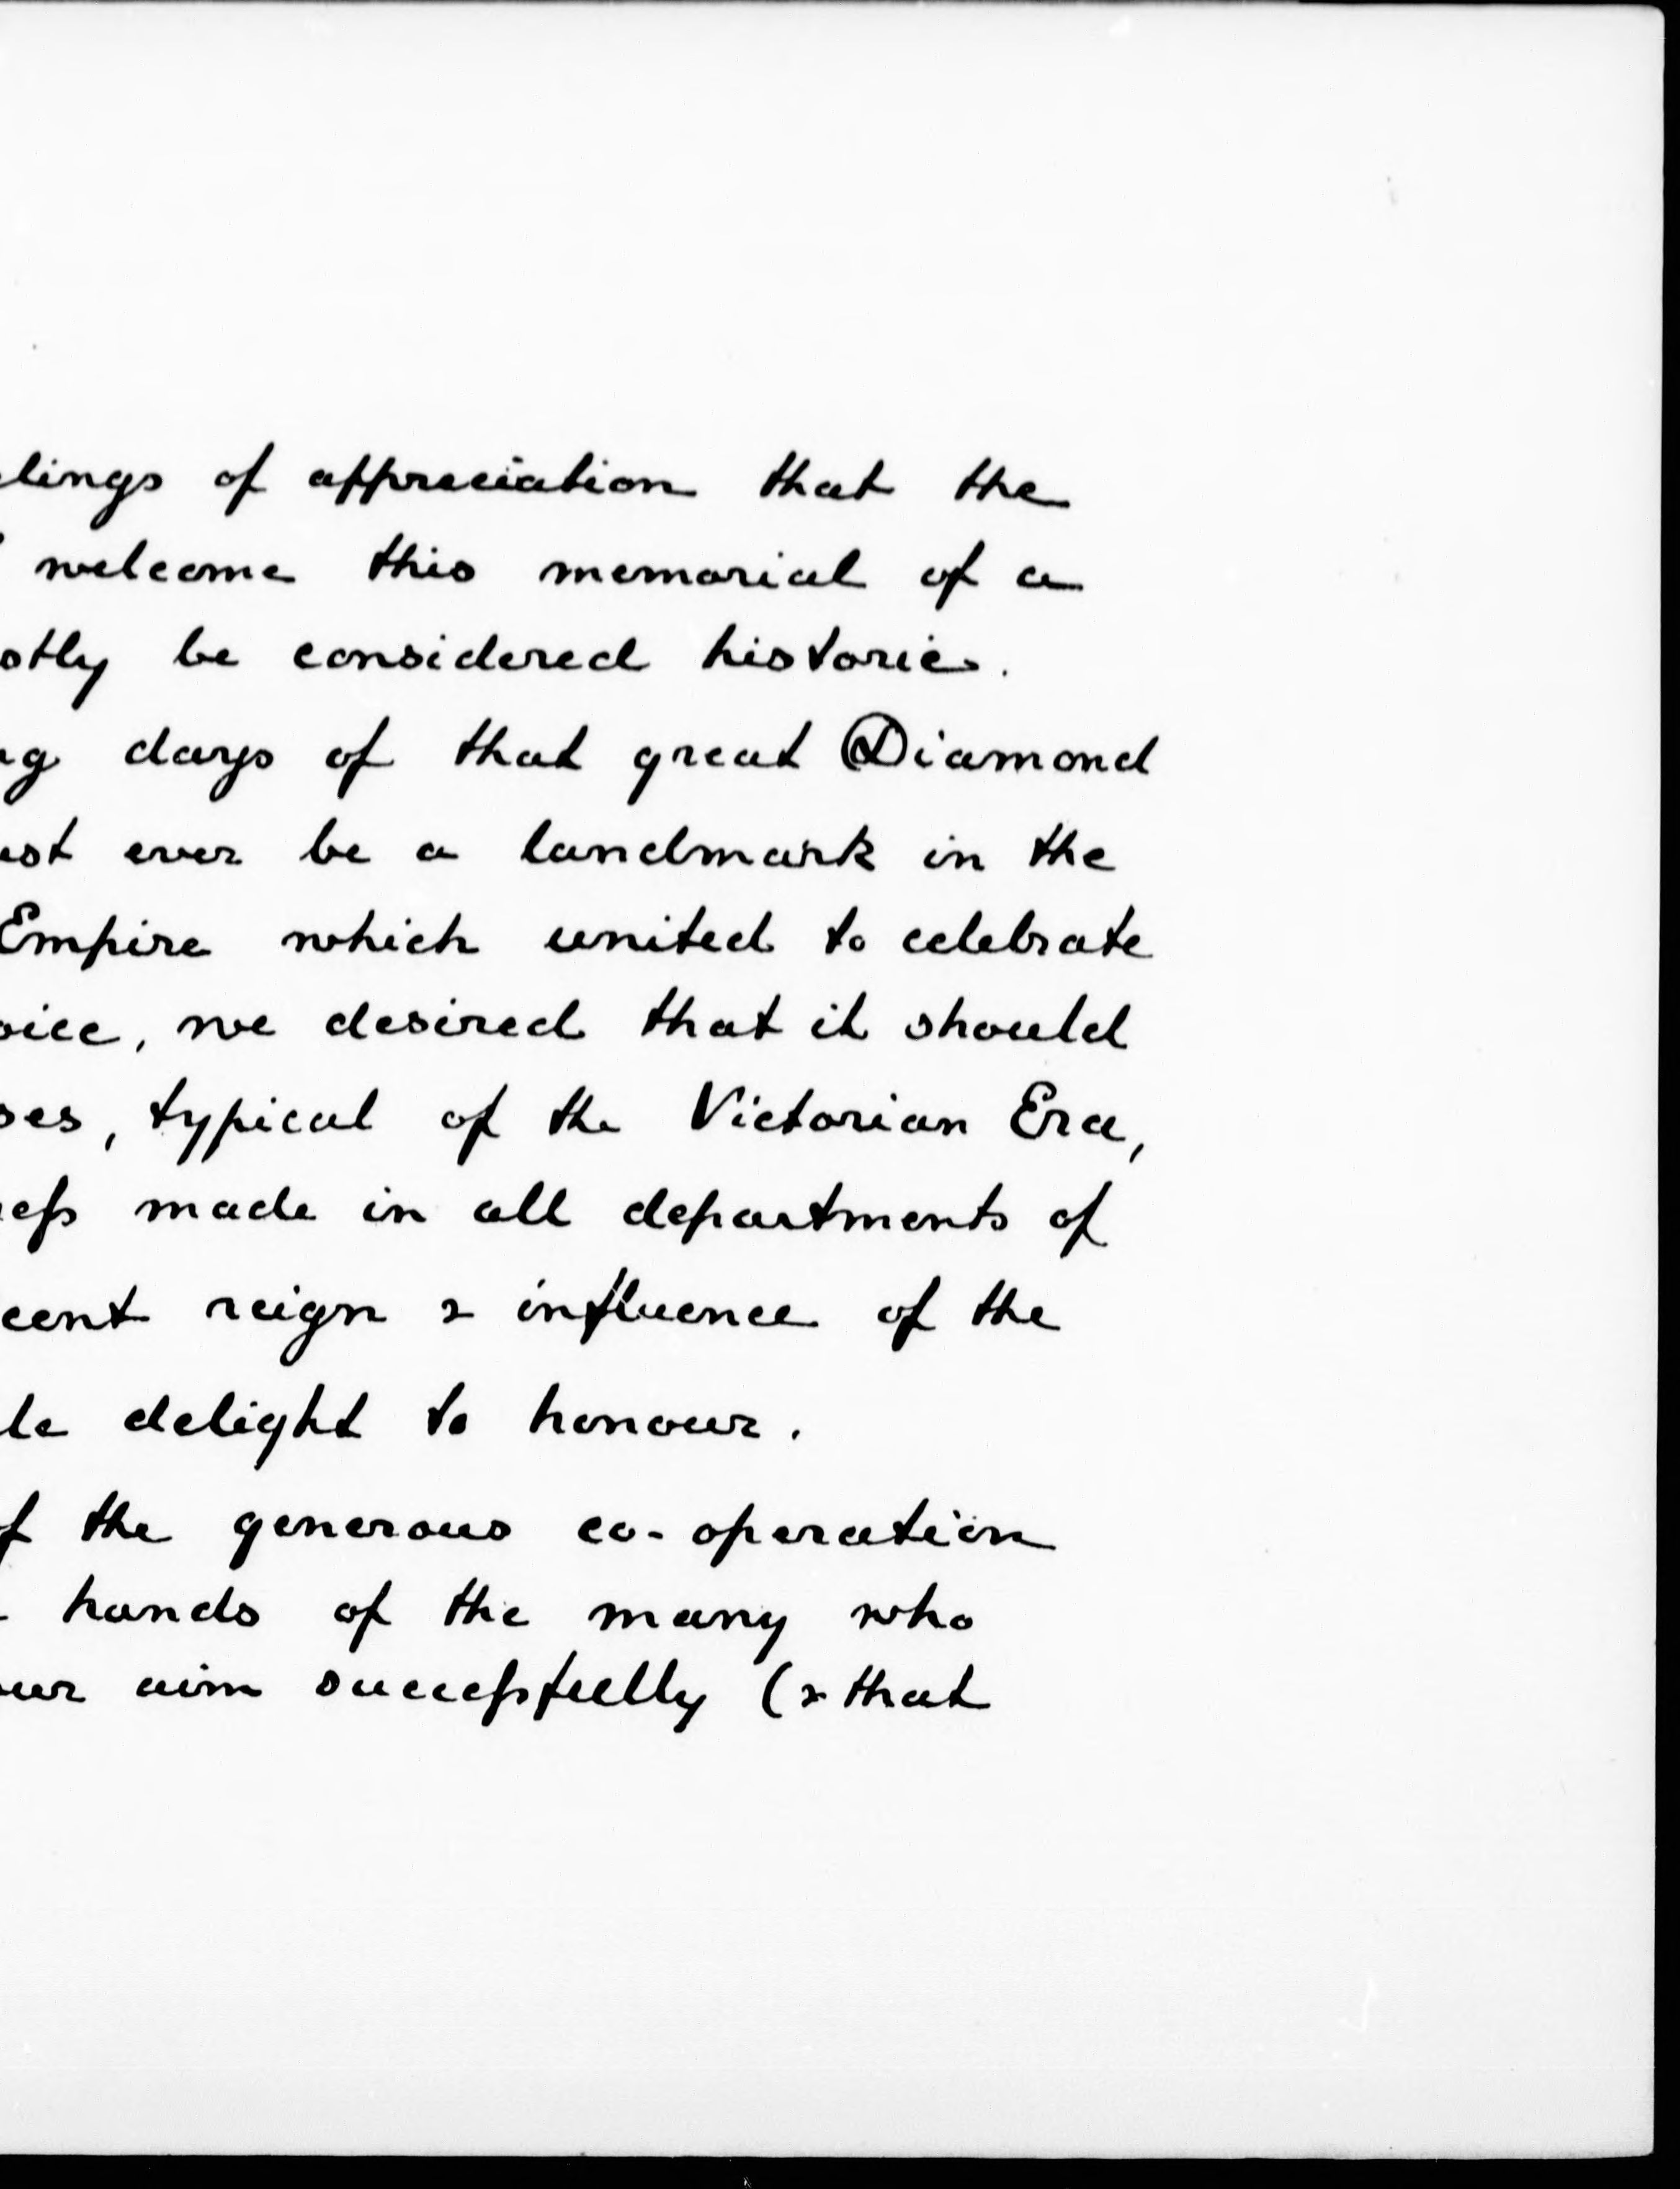 lings of appreciation that the
welcome this memorial of a
stly be considered historic.
ng days of that great Diamond
ust ever be a landmark in the
Empire which united to celebrate
oice, we desired that it should
ses, typical of the Victorian Era,
ess made in all departments of
cent reign & influence of the
le delight to honour.
of the generous co-operation
hands of the many who
our aim successfully (& that